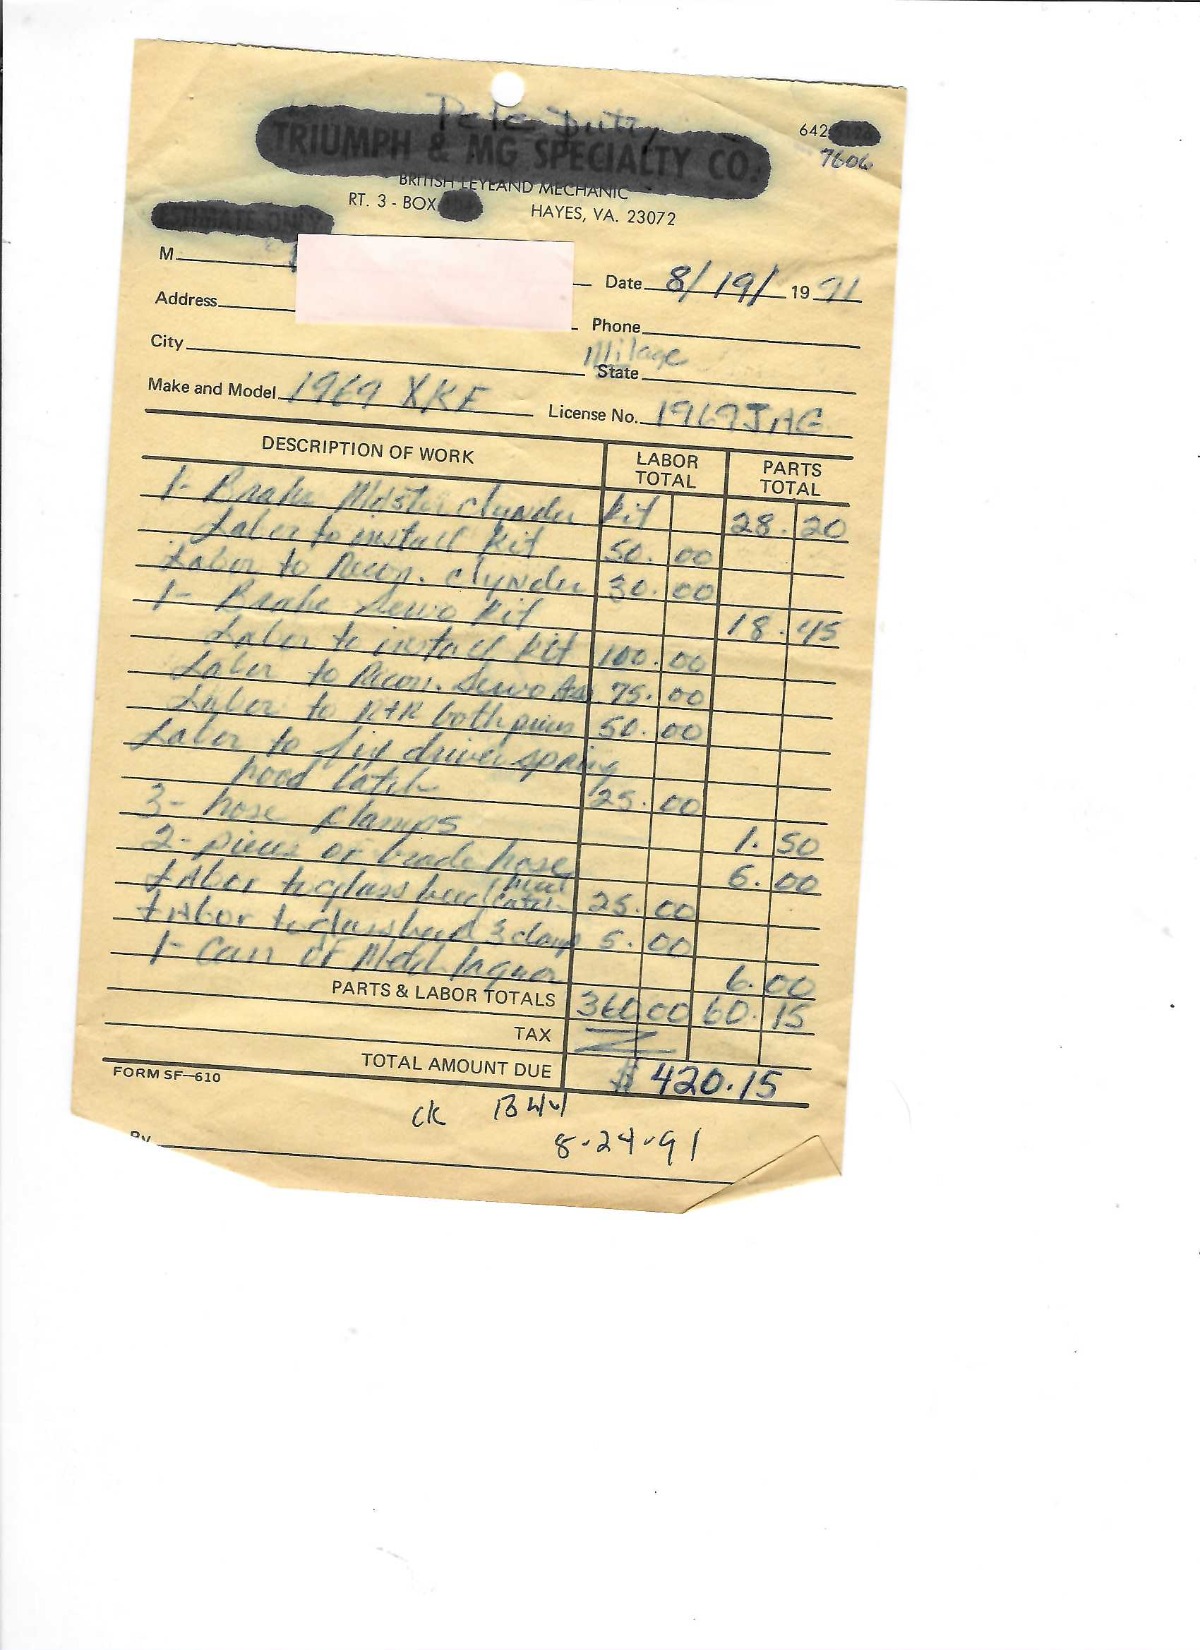 Pete Duty
TRIUMPH & MG SPECIALTY CO.
642
7606
BRITISH LEYLAND MECHANIC
RT. 3 - BOX HAYES, VA. 23072
ESTIMATE ONLY
M
Date 8/19/ 19 91
Address
Phone
City
Milage
State
Make and Model 1969 XKE License No. 1969JAG
DESCRIPTION OF WORK LABOR TOTAL PARTS TOTAL
1- Brake Master clynder Kit 28.20
Labor to install Kit 50.00
Labor to Recon. clynder 30.00
1- Brake Servo Kit 18.45
Labor to install Kit 100.00
Labor to Recon. Servo Ass 75.00
Labor to R+R both 50.00
Labor to fix driver spring
hood latch 25.00
3- hose clamps 1.50
2- pieces of hose 6.00
Labor to glass bead 25.00
Labor to glass bead 3 clamp 5.00
1- Can of 6.00
PARTS & LABOR TOTALS 360.00 60.15
TAX
TOTAL AMOUNT DUE $ 420.15
FORM SF-610
CK
8-24-91
By